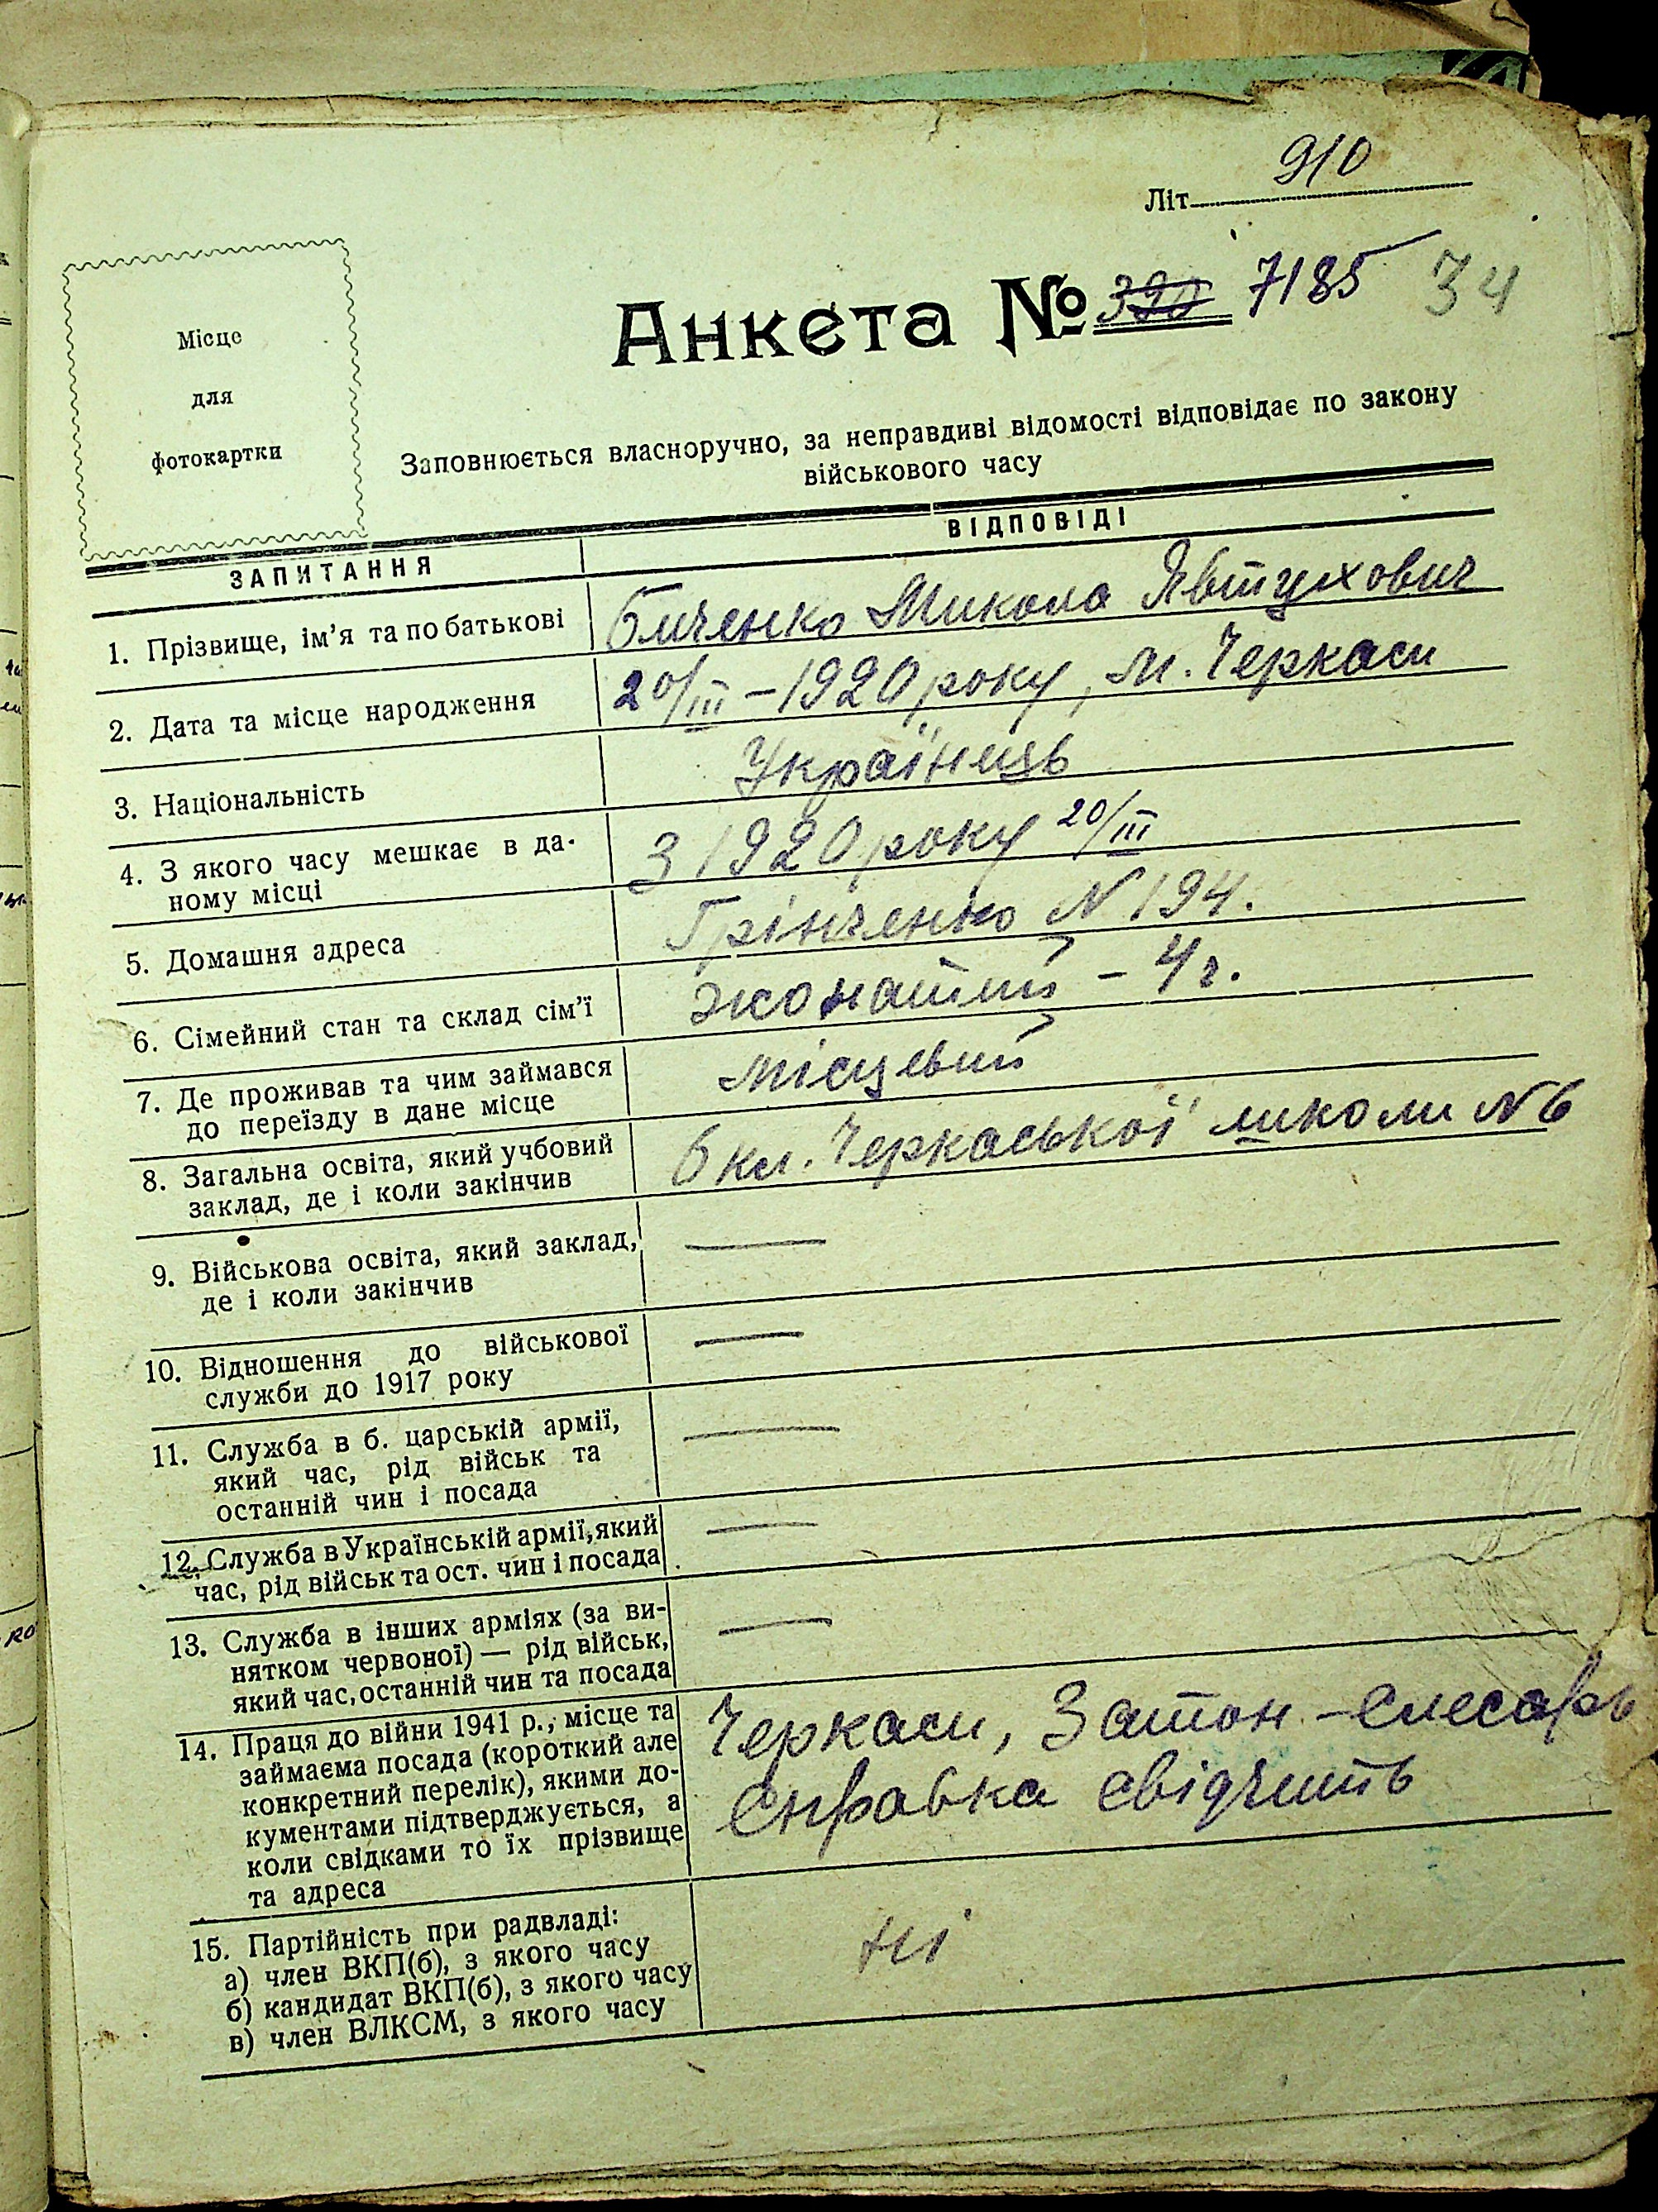 Літ. 910
Анкета № 390 7185 34
Місце
для
фотокартки
Заповнюється власноручно, за неправдиві відомості відповідає по закону
військового часу
ЗАПИТАННЯ
ВІДПОВІДІ
1. Прізвище, ім'я та по батькові
Биченко Микола Явтухович
2. Дата та місце народження
20/III – 1920 року, м. Черкаси
3. Національність
Українець
4. З якого часу мешкає в да-
ному місці
З 1920 року 20/III
5. Домашня адреса
Грінченко N 194.
6. Сімейний стан та склад сім'ї
жонатий – 4 ч.
7. Де проживав та чим займався
до переїзду в дане місце
місцевий
8. Загальна освіта, який учбовий
заклад, де і коли закінчив
6 кл. Черкаської школи N 6
9. Військова освіта, який заклад,
де і коли закінчив
—
10. Відношення до військової
служби до 1917 року
—
11. Служба в б. царській армії,
який час, рід військ та
останній чин і посада
—
12. Служба в Українській армії, який
час, рід військ та ост. чин і посада
—
13. Служба в інших арміях (за ви-
нятком червоної) — рід військ,
який час, останній чин та посада
—
14. Праця до війни 1941 р., місце та
займаєма посада (короткий але
конкретний перелік), якими до-
кументами підтверджується, а
коли свідками то їх прізвище
та адреса
Черкаси, Затон – слесарь
справка свідчить
15. Партійність при радвладі:
а) член ВКП(б), з якого часу
б) кандидат ВКП(б), з якого часу
в) член ВЛКСМ, з якого часу
ні